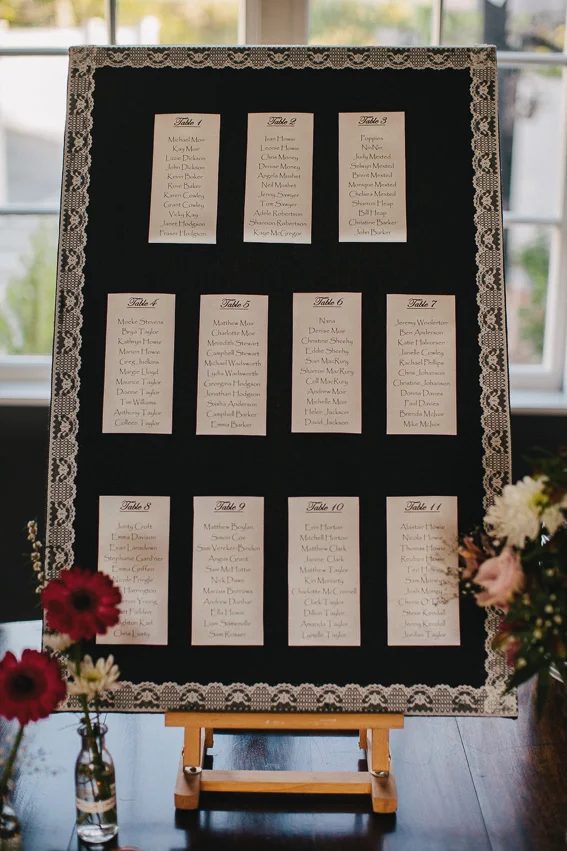 Table 1
Michael Moir
Kay Moir
Lizzie Dickson
John Dickson
Kevin Baker
Rina Baker
Karen Cowley
Grant Cowley
Vicky Kay
Janet Hodgson
Fraser Hodgson
Table 2
Ivan Howie
Leonie Howie
Chris Money
Denise Money
Angela Mushet
Neil Mushet
Jenny Sawyer
Tim Sawyer
Adele Robertson
Shannon Robertson
Kaye McGregor
Table 3
Poppies
NoNin
Judy Mested
Selwyn Mested
Brent Mested
Monique Mested
Chelsea Mested
Sharon Heap
Bill Heap
Christine Barker
John Barker
Table 4
Stevens
Bryd Taylor
Kathryn Howie
Marion Howie
Greg Jenkins
Margie Lloyd
Maurice Taylor
Dianne Taylor
Tim Williams
Anthony Taylor
Colleen Taylor
Table 5
Matthew Moir
Charlotte Moir
Meredith Stewart
Campbell Stewart
Michael Wadsworth
Lydia Wadsworth
Georgina Hodgson
Jonathan Hodgson
Sasha Anderson
Campbell Barker
Emma Barker
Table 6
Nana
Denise Muir
Christine Sheehy
Eddie Sheehy
Sian MacRury
Shannon MacRury
Coll MacRury
Andrew Moir
Michelle Moir
Helen Jackson
David Jackson
Table 7
Jeremy Woolerton
Ben Anderson
Katie Halvorsen
Janelle Cowley
Rachael Phillips
Chris Johanson
Christine Johanson
Donna Davies
Paul Davies
Brenda McIvor
Mike McIvor
Table 8
Jonty Croft
Emma Davison
Evan Lansdown
Stephanie Gardiner
Emma Griffen
Pringle
Young
Karl
Chris Lusty
Table 9
Matthew Boylan
Simon Cox
Sam Vercker-Bindon
Angus Grant
Sam McHattie
Nick Daws
Marcus Burrows
Andrew Dunbar
Ella Howie
Liam Somerville
Sam Rosser
Table 10
Erin Horton
Mitchell Horton
Matthew Clark
Janine Clark
Matthew Taylor
Kim Moriarty
Charlotte McConnell
Clark Taylor
Jillian Taylor
Amanda Taylor
Lynelle Taylor
Table 11
Alastair Howie
Nicola Howie
Thomas Howie
Howie
Steve Kendall
Jenny Kendall
Jordan Taylor